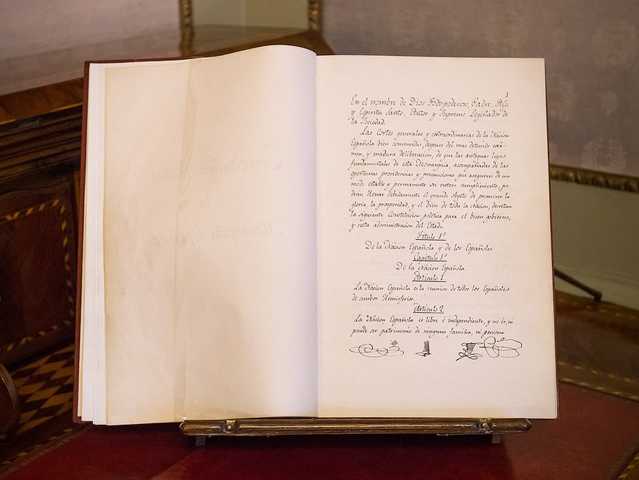 1
En el nombre de Dios Todopoderoso, Padre, Hijo
y Espiritu Santo, Autor y Supremo Legislador de
la Sociedad.
Las Cortes generales y extraordinarias de la Nacion
Española bien convencidas, despues del mas detenido exa-
men, y madura deliberacion, de que las antiguas leyes
fundamentales de esta Monarquia, acompañadas de las
oportunas providencias y precauciones que aseguren de un
modo estable y permanente su entero cumplimiento, po-
drán llenar debidamente el grande objeto de promover la
gloria, la prosperidad, y el bien de toda la Nacion, decretan
la siguiente Constitucion politica para el buen gobierno,
y recta administracion del Estado.
Titulo 1.º
De la Nacion Española y de los Españoles
Capitulo 1.º
De la Nacion Española
Articulo 1.
La Nacion Española es la reunion de todos los Españoles
de ambos Hemisferios.
Articulo 2.
La Nacion Española es libre é independiente, y no es, ni
puede ser patrimonio de ninguna familia, ni persona